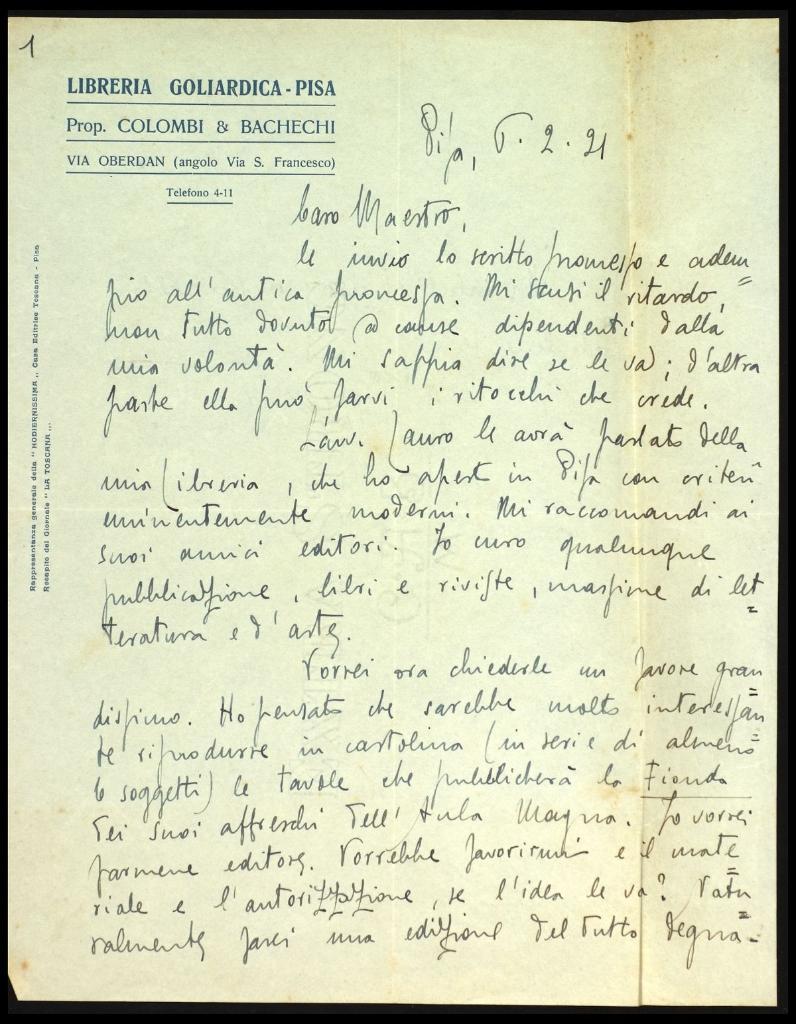 1
LIBRERIA GOLIARDICA - PISA
Prop. COLOMBI & BACHECHI
VIA OBERDAN (angolo Via S. Francesco)
Telefono 4-11
Rappresentanza generale della "MODERNISSIMA" Casa Editrice Toscana - Pisa
Recapito del Giornale "LA TOSCANA"...
Pisa, 6. 2. 21
Caro Maestro,
le invio lo scritto promesso e adem=
pio all'antica promessa. Mi scusi il ritardo,
non tutto dovuto a cause dipendenti dalla
mia volontà. Mi sappia dire se le va; d'altra
parte ella può farvi i ritocchi che crede.
L'avv. Lauro le avrà parlato della
mia libreria, che ho apert in Pisa con criteri
eminentemente moderni. Mi raccomandi ai
suoi amici editori. Io curo qualunque
pubblicazione, libri e riviste, massime di let=
teratura e d'arte.
Vorrei ora chiederle un favore gran=
dissimo. Ho pensato che sarebbe molto interessan=
te riprodurre in cartolina (in serie di almeno
6 soggetti) le tavole che pubblicherà la Fionda
dei suoi affreschi dell'Aula Magna. Io vorrei
farmene editore. Vorrebbe favorirmi e il mate=
riale e l'autorizzazione, se l'idea le va? Natu=
ralmente farei una edizione del tutto degna.